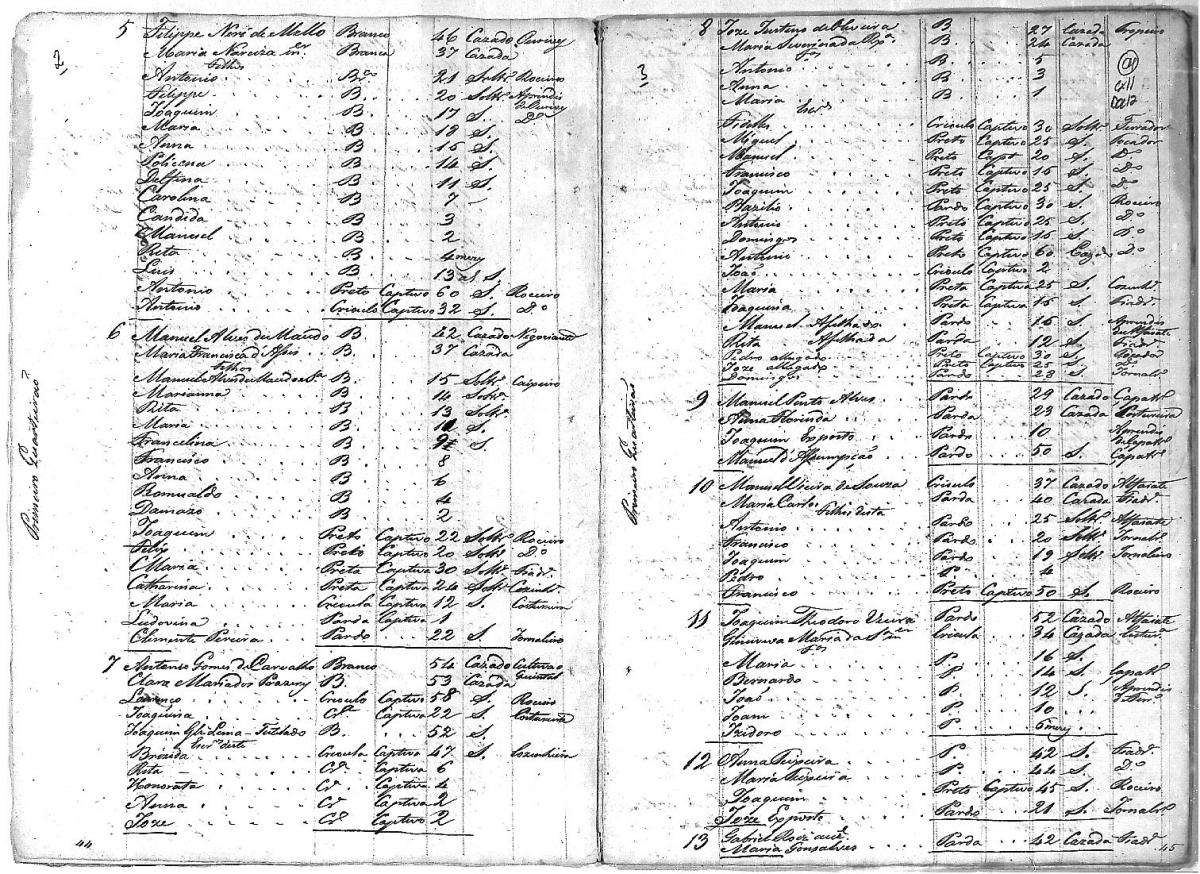 2,
Primeiro Quarteirão
5 Filippe Neri de Mello Branco 46 Cazado Ourivez
Maria Narciza Branca 37 Cazada
Filhos
Antonio Bco 21 Soltro Roceiro
Filippe B. 20 Soltro Aprendis de Ourivez
Joaquim B. 17 S. Do
Maria B. 12 S.
Anna B. 15 S.
Policena B 14 S.
Delfina B. 11 S.
Carolina B 7
Candida B 3
Manuel B 2
Rita B. 4 mezes
Luis B 13 S.
Antonio Preto Captivo 60 S. Roceiro
Antonio Crioulo Captivo 32 S. Do
6 Manuel Alves de Macedo B 42 Cazado Negociante
Maria Francisca d'Assis B. 37 Cazada
Filhos
Manuel Alves de Macedo B. 15 Soltro Caixeiro
Marianna B. 14 Soltra
Rita B. 13 Soltra
Maria B. S.
Francelina B. S
Francisco B. 8
Anna B. 6
Romualdo B. 4
Damazo B. 2
Joaquim Preto Captivo 22 Soltro Roceiro
Felix Preto Captivo 20 Soltro Do
Maria Preta Captiva 30 Soltra Fiadra
Catharina Preta Captiva 24 Soltra Cozinhra
Maria Creoula Captiva 12 S. Costureira
Ludovina Parda Captiva 1
Clemente Pereira Pardo 22 S. Jornaleiro
7 Antonio Gomes de Carvalho Branco 54 Cazado Cultiva o Quintal
Clara Maria dos Prazeres B. 53 Cazada
Lourenço Creoulo Captivo 58 S. Roceiro
Joaquina Cra Captiva 22 S. Costureira
Joaquim Glz Lima - Tutelado B. 52 S.
Escros deste
Brizida Creoula Captiva 47 S. Cozinheira
Rita Cra Captiva 6
Honorata Ca Captiva 4
Anna Ca Captiva 2
Joze Cro Captivo 2
44
3
Primeiro Quarteirão
8 Joze de Oliveira B. 27 Cazado Tropeiro
Maria Severina da B. 24 Cazada
Fos
Antonio B. 5
Anna B. 3
Maria B 1
Escros
Fidelis Crioulo Captivo 30 Soltro Ferrador
Miguel Preto Captivo 25 S. Tocador
Manuel Preto Capto 20 S. Do
Francisco Preto Captivo 15 S. Do
Joaquim Preto Captivo 25 S. Do
Bazilio Pardo Captivo 30 S. Roceiro
Antonio Preto Captivo 25 S. Do
Domingos Preto Captivo 15 S. Do
Antonio Preto Captivo 60 Cazdo Do
João Crioulo Captivo 2
Maria Preta Captiva 25 S. Cozinhra
Joaquina Preta Captiva 15 S. Fiadra
Manuel Afilhado Pardo 15 S Aprendis de Alfaiate
Rita Afilhada Parda 12 S. Fiadra
Pedro allugado Preto Captivo 30 S. Tocador
Joze allugado Preto Captivo 25 S. Do
Domingos Pardo 28 S. Jornalro
9 Manuel Pinto Alves Pardo 29 Cazado Capatro
Anna Florinda Parda 23 Cazada Costureira
Joaquim Exposto Pardo 10 Aprendis de Capatro
Manuel d'Assumpção Pardo 50 S. Capatro
10 Manuel Vieira de Souza Crioulo 37 Cazado Alfaiate
Maria Parda 40 Cazada Fiadra
Filhos desta
Antonio Pardo 25 Soltro Alfaiate
Francisco Pardo 20 Soltro Jornalro
Joaquim Pardo 19 Soltro Jornaleiro
Pedro P. 4
Francisco Preto Captivo 50 S. Roceiro
11 Joaquim Theodoro Vieira Pardo 52 Cazado Alfaiate
Genoveva Maria da Creoula 34 Cazada Costura
Fos
Maria P. 16 S.
Bernardo P. 14 S. Capatro
João P. 12 S. Aprendis
Joam P. 10
Izidoro P. 6 mezes
12 Anna Teixeira P. 42 S. Fiadra
Maria Teixeira P. 44 S. Do
Joaquim Preto Captivo 45 S. Roceiro
Joze Exposto Pardo 21 S. Jornalro
13 Gabriel
Maria Gonsalves Parda 42 Cazada Fiadra
45